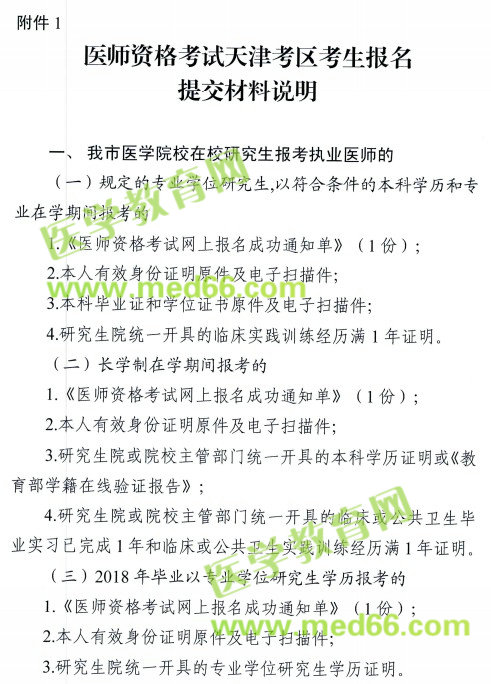 附件 1
医师资格考试天津考区考生报名
提交材料说明
一、我市医学院校在校研究生报考执业医师的
（一）规定的专业学位研究生,以符合条件的本科学历和专
业在学期间报考的
1.《医师资格考试网上报名成功通知单》（1 份）;
2.本人有效身份证明原件及电子扫描件;
3.本科毕业证和学位证书原件及电子扫描件;
4.研究生院统一开具的临床实践训练经历满 1 年证明。
（二）长学制在学期间报考的
1.《医师资格考试网上报名成功通知单》（1 份）;
2.本人有效身份证明原件及电子扫描件;
3.研究生院或院校主管部门统一开具的本科学历证明或《教
育部学籍在线验证报告》;
4.研究生院或院校主管部门统一开具的临床或公共卫生毕
业实习已完成 1 年和临床或公共卫生实践训练经历满 1 年证明。
（三）2018 年毕业以专业学位研究生学历报考的
1.《医师资格考试网上报名成功通知单》（1 份）;
2.本人有效身份证明原件及电子扫描件;
3.研究生院统一开具的专业学位研究生学历证明。
医学教育网
www.med66.com
医学教育网
www.med66.com